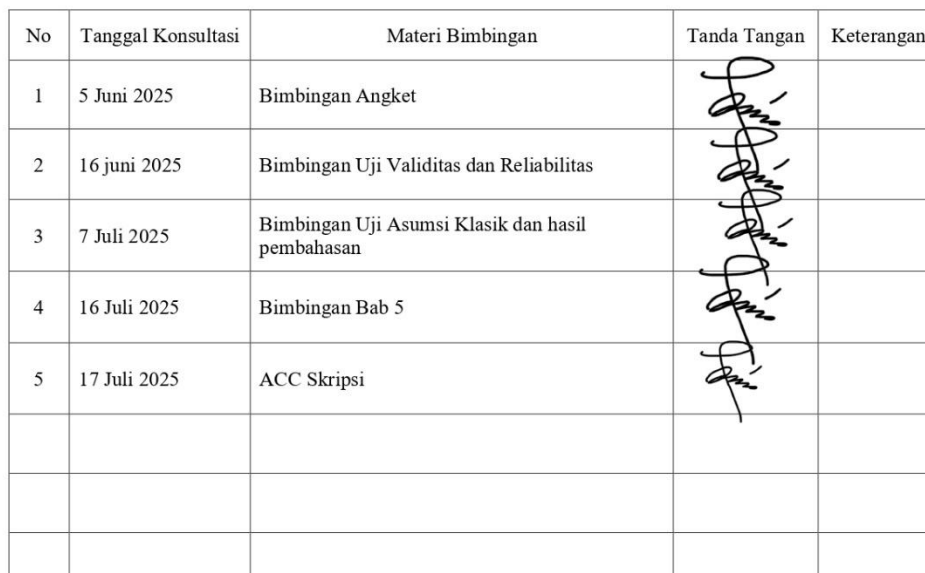 No Tanggal Konsultasi Materi Bimbingan Tanda Tangan Keterangan
1 5 Juni 2025 Bimbingan Angket
2 16 juni 2025 Bimbingan Uji Validitas dan Reliabilitas
3 7 Juli 2025 Bimbingan Uji Asumsi Klasik dan hasil
pembahasan
4 16 Juli 2025 Bimbingan Bab 5
5 17 Juli 2025 ACC Skripsi